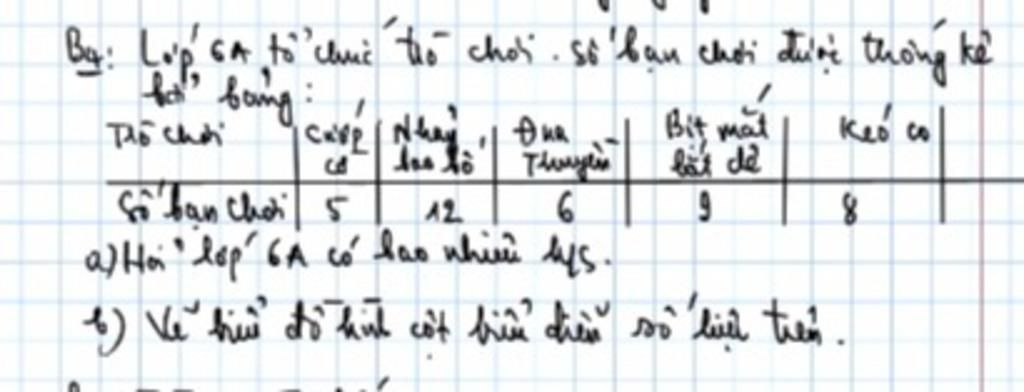 B4: Lớp 6A tổ chức trò chơi. Số bạn chơi được thống kê
bởi bảng:
Trò chơi | Cướp cờ | Nhảy bao bố | Đua Thuyền | Bịt mắt bắt dê | Kéo co
Số bạn chơi | 5 | 12 | 6 | 9 | 8
a) Hỏi lớp 6A có bao nhiêu h/s.
b) Vẽ biểu đồ hình cột biểu diễn số liệu trên.